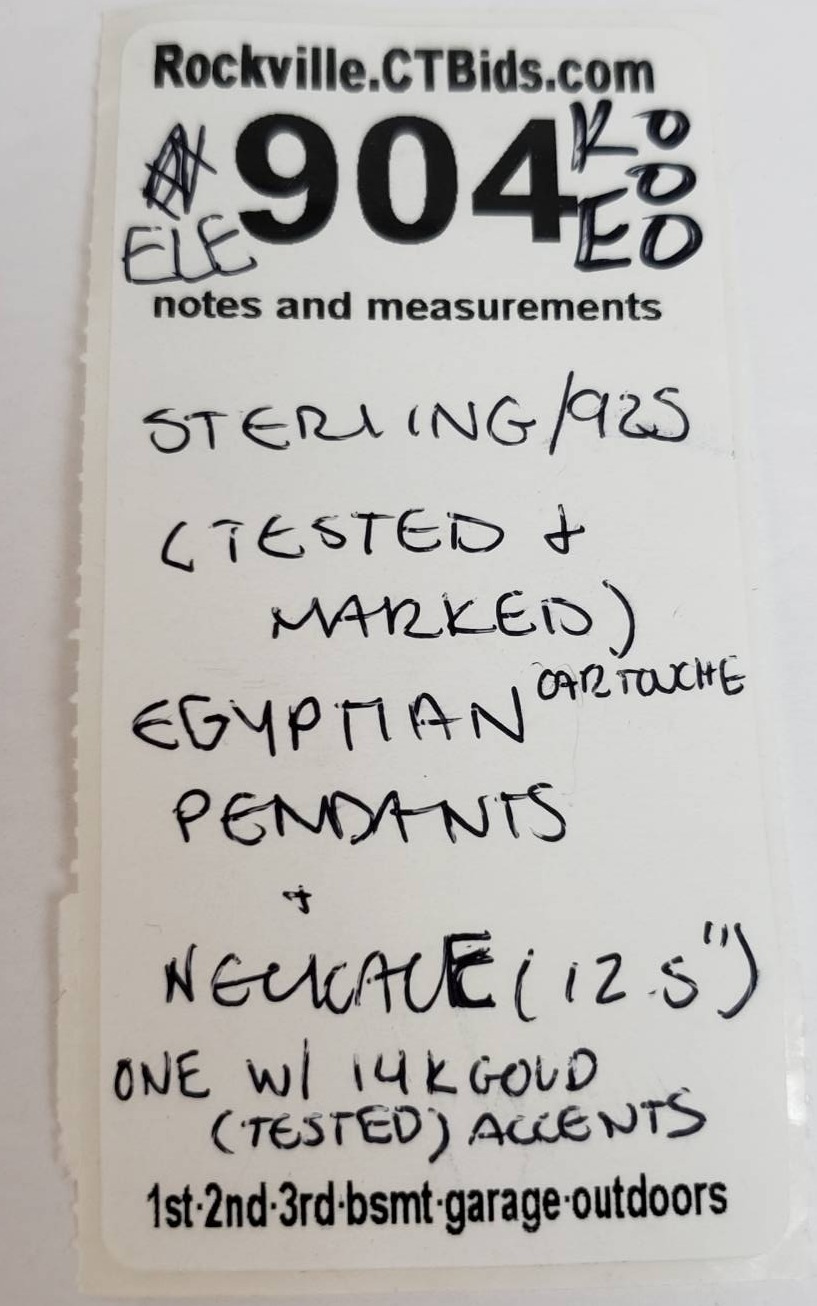 Rockville.CTBids.com
904
KO
O
EO
ELE
notes and measurements
STERLING/925
(TESTED &
MARKED)
EGYPTIAN CARTOUCHE
PENDANTS
+
NECKACE (12.5")
ONE W/ 14K GOLD
(TESTED) ACCENTS
1st·2nd·3rd·bsmt·garage·outdoors